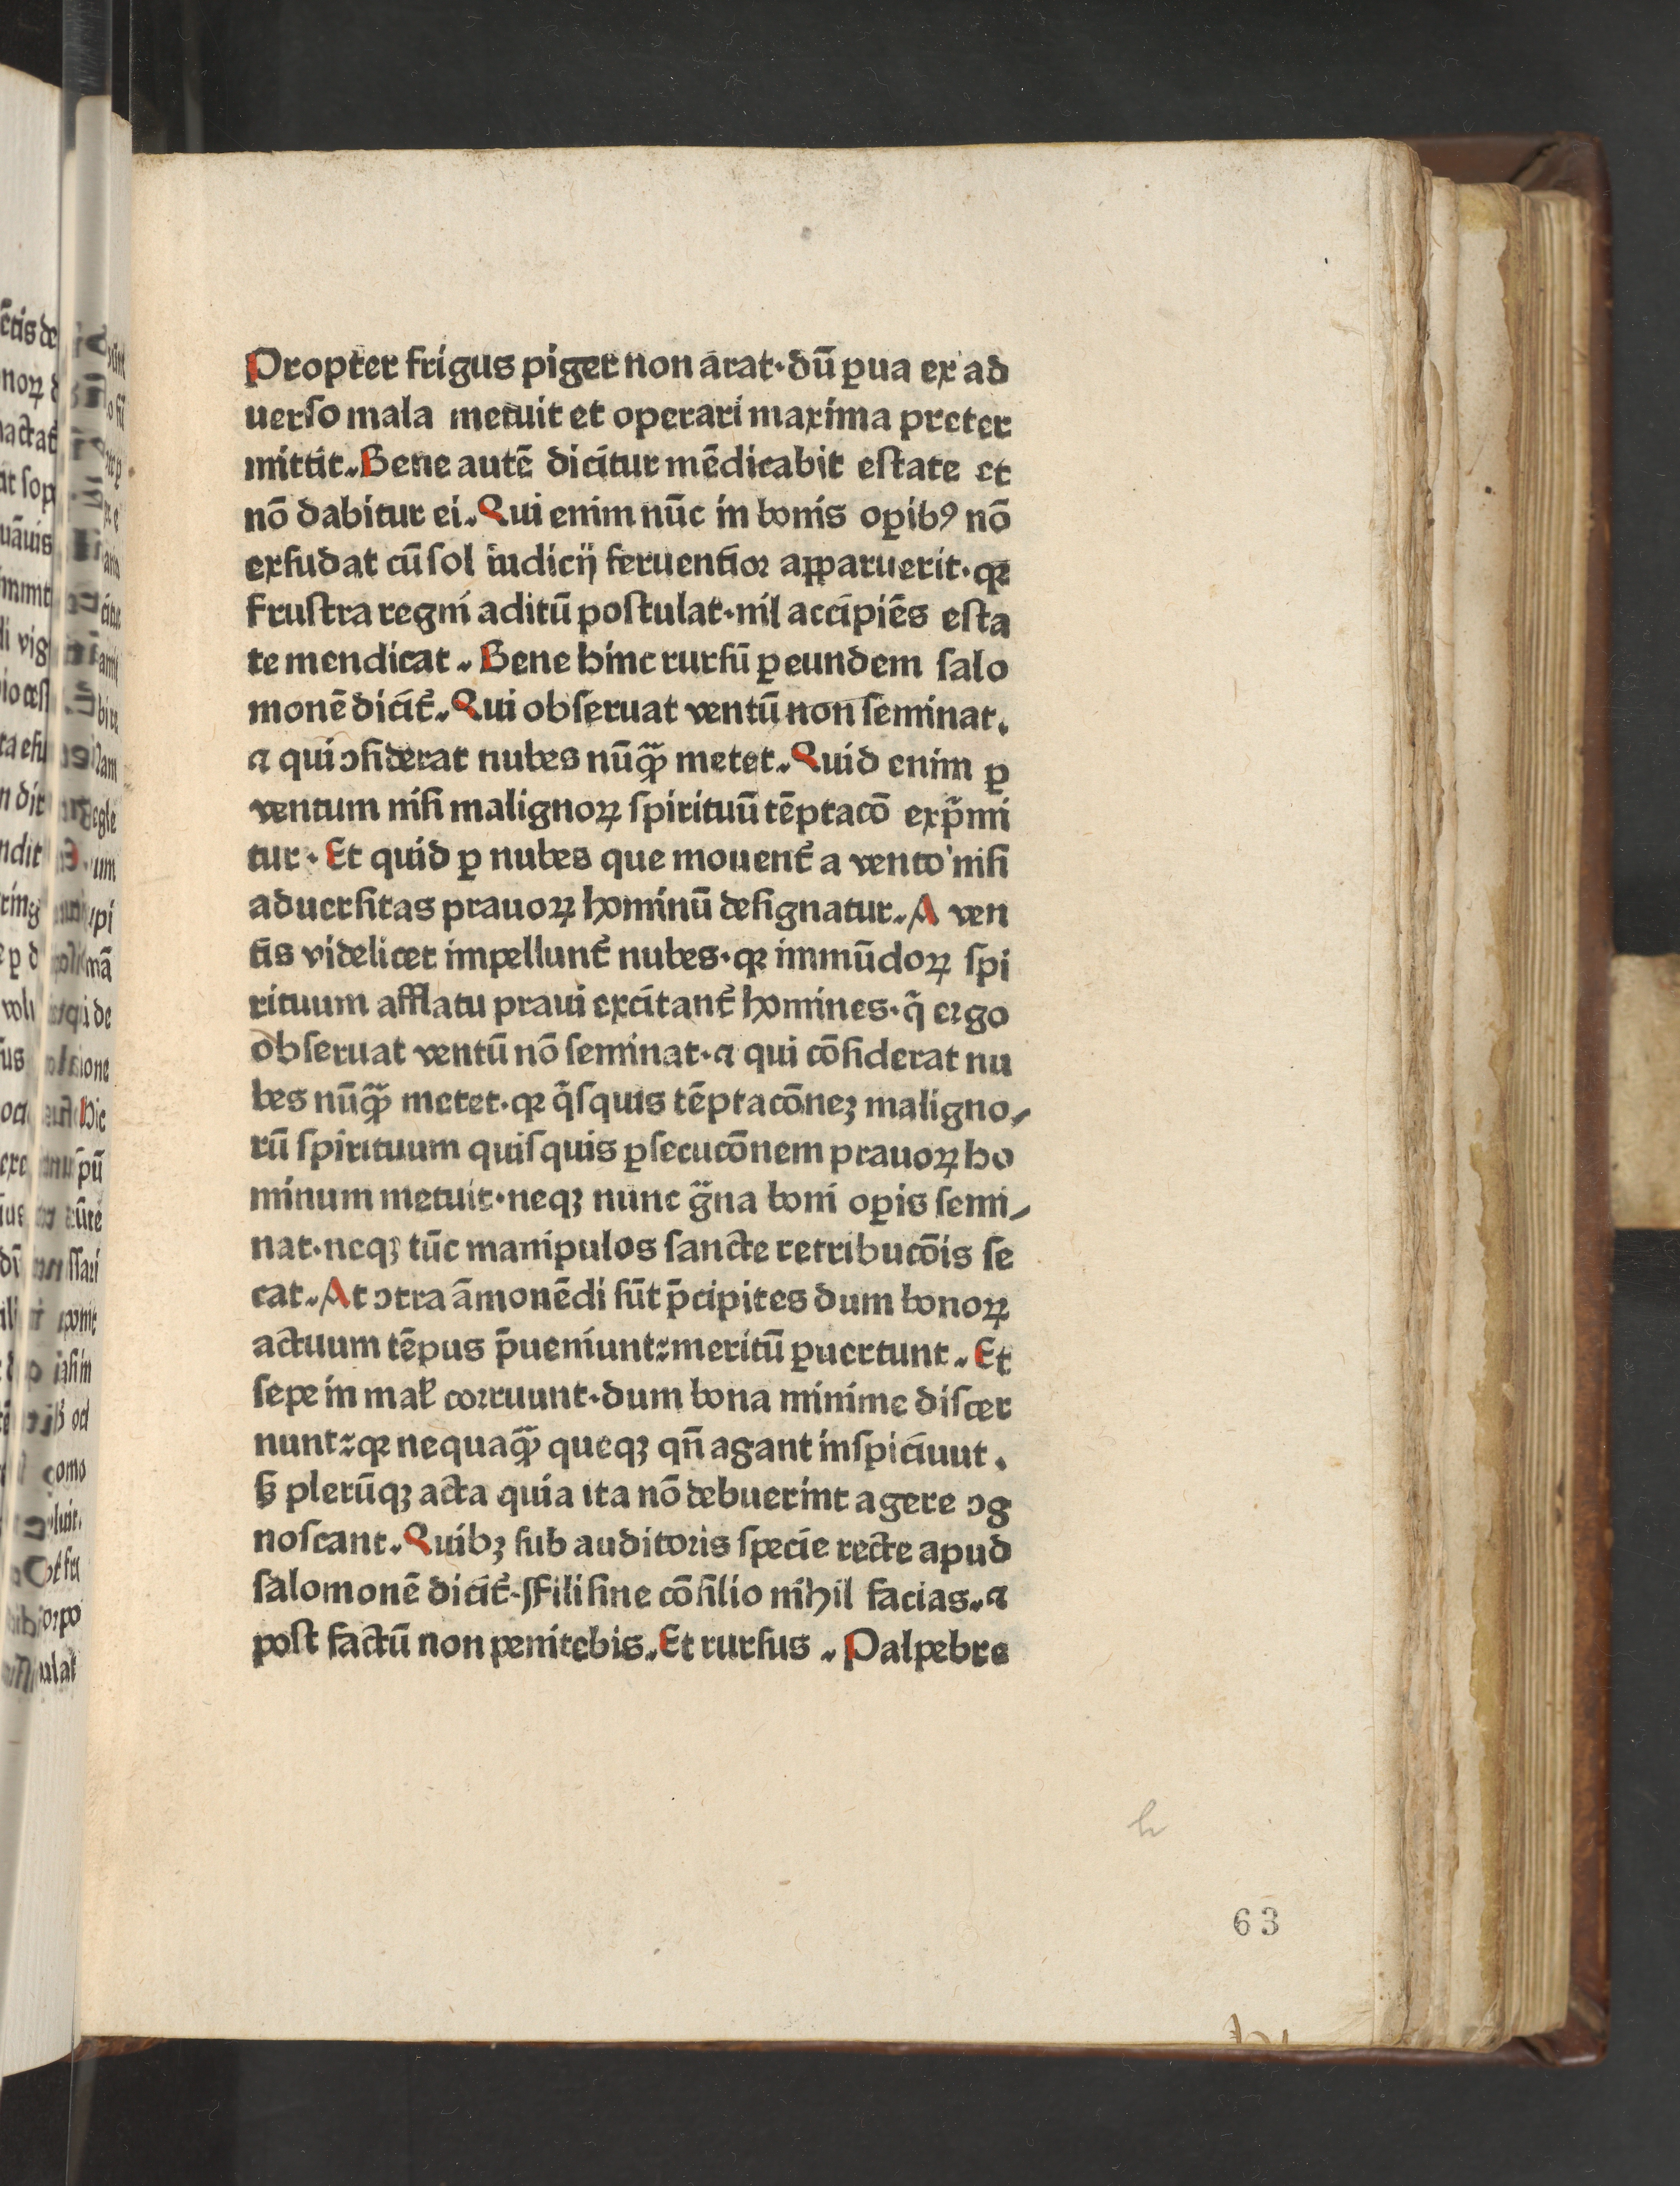 Propter frigus piger non arat·dū ꝑua ex ad
uerſo mala metuit et operari maxima preter
mittit.Bene autē dicitur mēdicabit eſtate et
nō dabitur ei.Qui enim nūc in bonis oꝑibꝰ nō
exſudat cū ſol iudicij feruentior apparuerit·qꝛ
fruſtra regni aditū poſtulat·nil accipiēs eſta
te mendicat.Bene hinc rurſū ꝑ eundem ſalo
monē dicit̄.Qui obſeruat ventū non ſeminat.
⁊ qui ↄſiderat nubes nūqͣꝫ metet.Quid enim ꝑ
ventum niſi malignoꝝ ſpirituū tēptacō exp̄mi
tur·Et quid ꝑ nubes que mouent̄ a vento niſi
aduerſitas prauoꝝ hominū deſignatur.A ven
tis videlicet impellunt̄ nubes·qꝛ immūdoꝝ ſpi
rituum afflatu praui excitant̄ homines·q̄ ergo
obſeruat ventū nō ſeminat·⁊ qui cōſiderat nu
bes nūqͣꝫ metet·qꝛ q̄ſquis tēptacōneꝫ maligno⸗
rū ſpirituum quiſquis ꝑſecucōnem prauoꝝ ho
minum metuit·neqꝫ nunc gͣna boni oꝑis ſemi⸗
nat·neqꝫ tūc manipulos ſancte retribucōis ſe
cat.At ↄtra āmonēdi ſūt p̄cipites dum bonoꝝ
actuum tēpus p̄ueniunt:meritū ꝑuertunt.Et
ſepe in mal̄ corruunt·dum bona minime diſcer
nunt:qꝛ nequaqͣꝫ queqꝫ qn̄ agant inſpiciuut.
ſꝫ plerūqꝫ acta quia ita nō debuerint agere ↄg
noſcant.Quibꝫ ſub auditoris ſpecie recte apud
ſalomonē dicit̄·Fili ſine cōſilio nihil facias.⁊
poſt factū non penitebis.Et rurſus .Palpebre
h
63